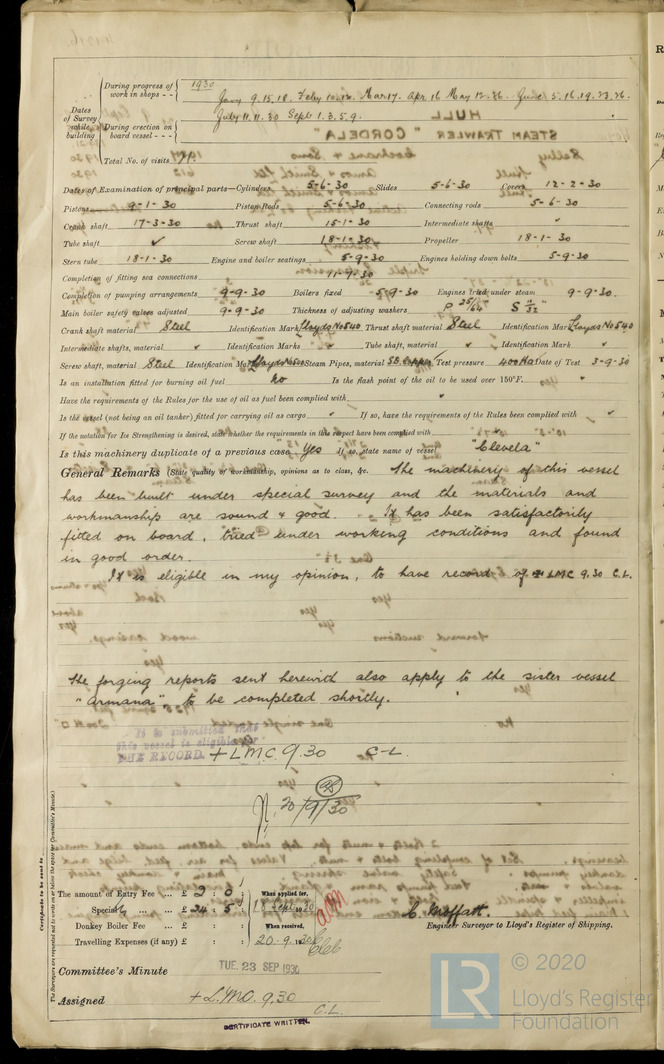 During progress of work in shops - -
1930
Jany 9.15.18. Feby 10.12. Mar 17. Apr 16 May 12.26. June 5.16.19.23.26.
Dates of Survey while building
July 11.11.30 Sept 1.3.5.9.
During erection on board vessel - - -
Total No. of visits
Dates of Examination of principal parts—Cylinders 5-6-30 Slides 5-6-30 Covers 12-2-30
Pistons 9-1-30 Piston Rods 5-6-30 Connecting rods 5-6-30
Crank shaft 17-3-30 Thrust shaft 15-1-30 Intermediate shafts
Tube shaft ✓ Screw shaft 18-1-30 Propeller 18-1-30
Stern tube 18-1-30 Engine and boiler seatings 5-9-30 Engines holding down bolts 5-9-30
Completion of fitting sea connections
Completion of pumping arrangements 9-9-30 Boilers fixed 5-9-30 Engines tried under steam 9-9-30.
Main boiler safety valves adjusted 9-9-30 Thickness of adjusting washers P 25/64" S 11/32"
Crank shaft material Steel Identification Mark Lloyds No 540 Thrust shaft material Steel Identification Mark Lloyds No 540
Intermediate shafts, material ✓ Identification Marks ✓ Tube shaft, material ✓ Identification Mark ✓
Screw shaft, material Steel Identification Mark Steam Pipes, material S.D. Copper Test pressure 400 Date of Test 3-9-30
Is an installation fitted for burning oil fuel No Is the flash point of the oil to be used over 150°F. ✓
Have the requirements of the Rules for the use of oil as fuel been complied with ✓
Is the vessel (not being an oil tanker) fitted for carrying oil as cargo ✓ If so, have the requirements of the Rules been complied with ✓
If the notation for Ice Strengthening is desired, state whether the requirements in this respect have been complied with
Is this machinery duplicate of a previous case Yes If so, state name of vessel "Clevela"
General Remarks (State quality of workmanship, opinions as to class, &c. The machinery of this vessel
has been built under special survey and the materials and
workmanship are sound & good. It has been satisfactorily
fitted on board, tried under working conditions and found
in good order.
It is eligible in my opinion, to have record of + LMC 9.30 C.L.
The forging reports sent herewith also apply to the sister vessel
"Armana" to be completed shortly.
It is submitted that
this vessel is eligible for
THE RECORD. + LMC 9.30 C-L
20/9/30
Certificate to be sent to
(The Surveyors are requested not to write on or below the space for Committee's Minute)
The amount of Entry Fee ... £ 2 : 0 : When applied for,
Special ... ... £ 24 : 5 : 18 Sept 1930
Donkey Boiler Fee ... £ : : When received,
Travelling Expenses (if any) £ : : 20.9.1930
C. Moffatt.
Engineer Surveyor to Lloyd's Register of Shipping.
Committee's Minute TUE. 23 SEP 1930
Assigned + L.M.C. 9,30
C.L.
CERTIFICATE WRITTEN.
LR © 2020
Lloyd's Register
Foundation